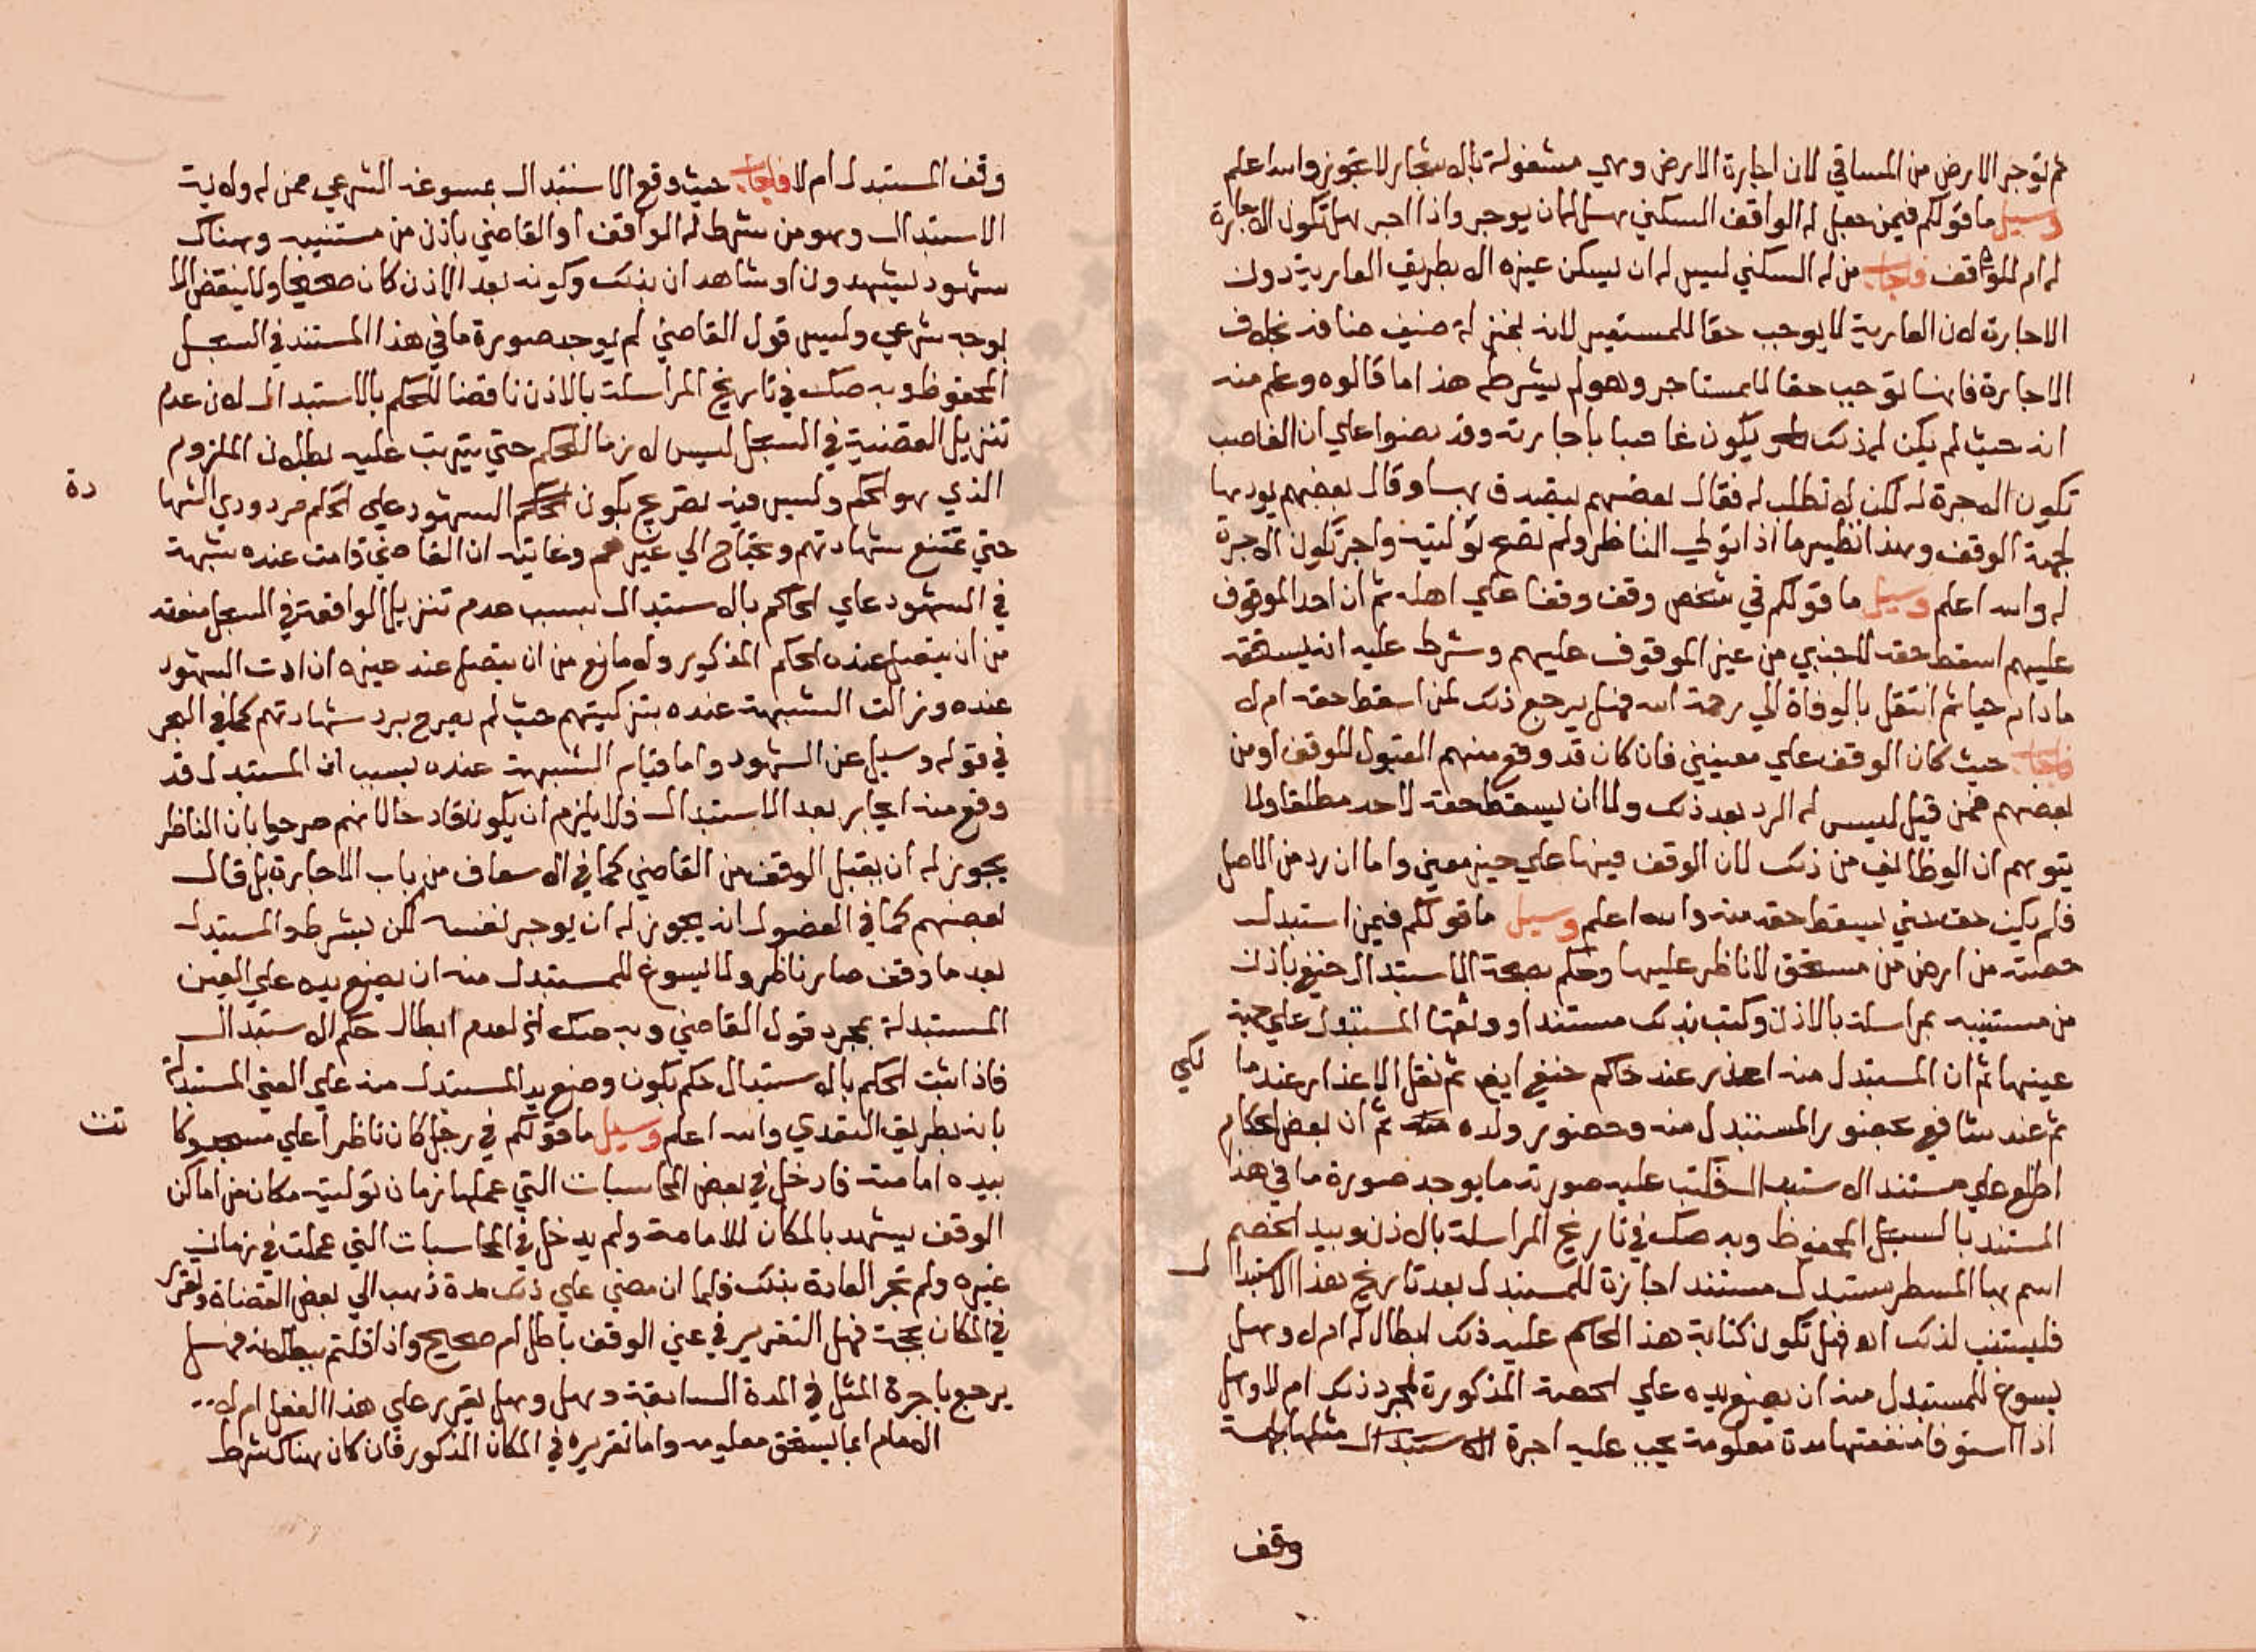 ثم تؤجر الارض من المساقي لان اجارة الارض وهي مشغولة بالاشجار لا تجوز والله اعلم
وسيل ما قولكم فيمن جعل له الواقف السكني هل له ان يوجر واذا اجر هل تكون الاجارة
له ام للواقف فاجاب من له السكني ليس له ان يسكن غيره الا بطريق العارية دون
الاجارة لان العارية لا يوجب حقا للمستعير لانه بمنزلة ضيف ضافه بخلاف
الاجارة فانها توجب حقا للمستاجر وهو لم يشرطه هذا ما قالوه وعلم منه
انه حيث لم يكن له ذلك يكون غاصبا باجارته وقد نصوا علي ان الغاصب
تكون الاجرة له لكن لا تطلب له فقال بعضهم يتصدق بها وقال بعضهم يوديها
لجهة الوقف وهذا نظير ما اذا تولي الناظر ولم تصح توليته واجر تكون الاجرة
له والله اعلم وسيل ما قولكم في شخص وقف وقفا علي اهله ثم ان احد الموقوف
عليهم اسقط حقه لاجنبي من غير الموقوف عليهم وشرط عليه انه يستحقه
ما دام حيا ثم انتقل بالوفاة الي رحمة الله فهل يرجع ذلك لمن اسقط حقه ام لا
فاجاب حيث كان الوقف علي معينين فان كان قد وقع منهم القبول للوقف او من
بعضهم فمن قبل ليس له الرد بعد ذلك ولا ان يسقط حقه لاحد مطلقا ولا
يتوهم ان الوظائف من ذلك لان الوقف فيها علي حيز معين واما ان رد من الاصل
فلم يكن حقه حتي يسقط حقه منه والله اعلم وسيل ما قولكم فيمن استبدل
حصته من ارض من مستحق لا ناظر عليها وحكم بصحة الاستبدال حنفي باذن
من مستنيبه بمراسلة بالاذن وكتب بذلك مستندا ووقفها المستبدل علي جهة
عينها ثم ان المستبدل منه اعذر عند حاكم حنفي ايض ثم نقل الاعذار عند ما لكي
ثم عند شافعي بحضور المستبدل منه وحضور ولده ثم ان بعض الحكام
اطلع علي مستند الاستبدال فكتب عليه صورته ما يوجد صورة ما في هذا
المستند بالسجل المحفوظ وبه صك في تاريخ المراسلة بالاذن وبيد الخصم
اسم بها المسطر مستبدل مستند اجازة للمستبدل بعد تاريخ هذا الاستبدا ل
فليتنبه لذلك اه فهل تكون كتابة هذا الحاكم عليه ذلك ابطال له ام لا وهل
يسوغ للمستبدل منه ان يضع يده علي الحصة المذكورة بمجرد ذلك ام لا وهل
اذا استوفا منفعتها مدة معلومة يجب عليه اجرة مثلها لجهة
وقف
وقف المستبدل ام لا فاجاب حيث وقع الاستبدال بمسوغه الشرعي ممن له ولاية
الاستبدال وهو من شرط له الواقف او القاضي باذن من مستنيبه وهناك
شهود يشهدون او شاهدان بذلك وكونه بعد الاذن كان صحيحا ولا ينقض الا
بوجه شرعي وليس قول القاضي لم يوجد صورة ما في هذا المستند في السجل
المحفوظ وبه صك في تاريخ المراسلة بالاذن ناقضا للحكم بالاستبدال لان عدم
تنزيل القضية في السجل ليس لازما للحكم حتي يترتب عليه بطلان الملزوم
الذي هو الحكم وليس فيه تصريح بكون الشهود علي الحكم مردودي الشها دة
حتي تمتنع شهادتهم ويحتاج الي غيرهم وغايته ان القاضي قامت عنده شبهة
في الشهود علي الحاكم بالاستبدال بسبب عدم تنزيل الواقعة في السجل منعته
من ان يتصل عنده الحكم المذكور ولا مانع من ان يتصل عند غيره ان ادت الشهود
عنده وزالت الشبهة عنده بتزكيتهم حيث لم يصرح برد شهادتهم كما في البحر
في قوله وسيل عن الشهود واما قيام الشبهة عنده بسبب ان المستبدل قد
وقع منه ايجار بعد الاستبدال فلا يلزم ان يكون قادحا لانهم صرحوا بان الناظر
يجوز له ان يقبل الوقف من القاضي كما في الاسعاف من باب الاجارة بل قال
بعضهم كما في الفصول انه يجوز له ان يوجر لنفسه لكن بشرطه والمستبدل
بعد ما وقف صار ناظر ولا يسوغ للمستبدل منه ان يضع يده علي العين
المستبدلة بمجرد قول القاضي وبه صك الخ لعدم ابطال حكم الاستبدال
فاذا ثبت الحكم بالاستبدال حكم بكون وضع يد المستبدل منه علي العين المستبدلة
بانه بطريق التعدي والله اعلم وسيل ما قولكم في رجل كان ناظرا علي مسجد وكا نت
بيده امامته فادخل في بعض المحاسبات التي عملها زمان توليته مكان من اماكن
الوقف يشهد بالمكان للامامة ولم يدخل في المحاسبات التي عملت في زمان
غيره ولم تجر العادة بذلك فلما ان مضي علي ذلك مدة ذهب الي بعض القضاة وتقرر
في المكان بحجة فهل التقرير في عين الوقف باطل ام صحيح واذا قلتم ببطلانه فهل
يرجع باجرة المثل في المدة السابقة وهل وهل يقرر علي هذا الفعل ام لا
الامام انما يستحق معلومه واما تقريره في المكان المذكور فان كان هناك شرط